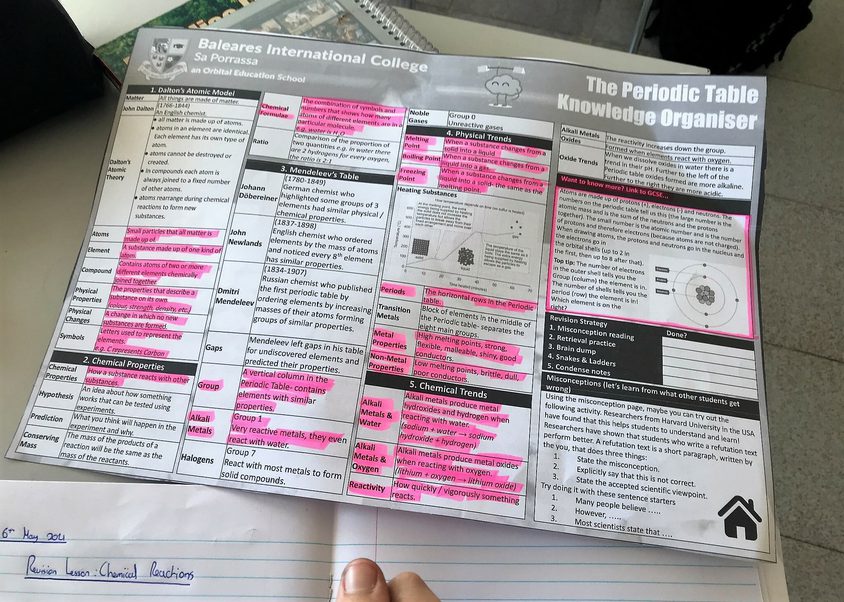 Baleares International College
Sa Porrassa
an Orbital Education School
The Periodic Table
Knowledge Organiser
1. Dalton's Atomic Model
Matter
All things are made of matter.
John Dalton
(1766-1844)
An English chemist.
Dalton's
Atomic
Theory
• all matter is made up of atoms.
• atoms in an element are identical.
Each element has its own type of
atom.
• atoms cannot be destroyed or
created.
• in compounds each atom is
always joined to a fixed
number of other atoms.
• atoms rearrange during chemical
reactions to form new
substances.
Atoms
Small particles that all matter is
made up of.
Element
A substance made up of one kind of
atom.
Compound
Contains atoms of two or more
different elements chemically
joined together
Physical
Properties
The properties that describe a
substance on its own.
Physical
Changes
A change in which no new
substances are formed.
Symbols
Letters used to represent the
elements.
e.g. C represents Carbon
2. Chemical Properties
Chemical
Properties
How a substance reacts with other
substances.
Hypothesis
An idea about how something
works that can be tested using
experiments.
Prediction
What you think will happen in the
experiment and why.
Conserving
Mass
The mass of the products of a
reaction will be the same as the
mass of the reactants.
Chemical
Formulae
The combination of symbols and
numbers that shows how many
atoms of different elements are in a
particular molecule.
e.g. water is H₂O
Ratio
Comparison of the proportion of
two quantities e.g. in water there
are 2 hydrogens for every oxygen,
the ratio is 2:1
3. Mendeleev's Table
Johann
Döbereiner
(1780-1849)
German chemist who
highlighted some groups of 3
elements had similar physical /
chemical properties.
John
Newlands
(1837-1898)
English chemist who ordered
elements by the mass of atoms
and noticed every 8th element
has similar properties.
Dmitri
Mendeleev
(1834-1907)
Russian chemist who published
the first periodic table by
ordering elements by increasing
masses of their atoms forming
groups of similar properties.
Gaps
Mendeleev left gaps in his table
for undiscovered elements and
predicted their properties.
Group
A vertical column in the
Periodic Table- contains
elements with similar
properties.
Alkali
Metals
Group 1
Very reactive metals, they even
react with water.
Halogens
Group 7
React with most metals to form
solid compounds.
Noble
Gases
Group 0
Unreactive gases
4. Physical Trends
Melting
Point
When a substance changes from a
solid into a liquid
Boiling Point
When a substance changes from a
liquid into a gas.
Freezing
Point
When a substance changes from a
liquid into a solid- the same as the
melting point.
Heating Substances
Periods
The horizontal rows in the Periodic
table.
Transition
Metals
Block of elements in the middle of
the Periodic table- separates the
eight main groups.
Metal
Properties
High melting points, strong,
flexible, malleable, shiny, good
conductors.
Non-Metal
Properties
Low melting points, brittle, dull,
poor conductors.
5. Chemical Trends
Alkali
Metals &
Water
Alkali metals produce metal
hydroxides and hydrogen when
reacting with water.
(sodium + water → sodium
hydroxide + hydrogen)
Alkali
Metals &
Oxygen
Alkali metals produce metal oxides
when reacting with oxygen.
(lithium + oxygen → lithium oxide)
Reactivity
How quickly / vigorously something
reacts.
Alkali Metals
The reactivity increases down the group.
Oxides
Formed when elements react with oxygen.
Oxide Trends
When we dissolve oxides in water there is a
trend in their pH. Further to the left of the
Periodic table oxides formed are more alkaline.
Further to the right they are more acidic.
Want to know more? Link to GCSE...
Atoms are made up of protons (+), electrons (-) and neutrons. The
numbers on the periodic table tell us this (the large number is the
atomic mass and is the sum of the neutrons and the protons
together). The small number is the atomic number and is the number
of protons and therefore electrons (because atoms are not charged).
When drawing atoms, the protons and neutrons go in the nucleus and
the electrons go in
the orbital shells (up to 2 in
the first, then up to 8 after that).
Top tip: The number of electrons
in the outer shell tells you the
Group (column) the element is in.
The number of shells tells you the
period (row) the element is in!
Which element is on the
right?
Revision Strategy
Done?
1. Misconception reading
2. Retrieval practice
3. Brain dump
4. Snakes & Ladders
5. Condense notes
Misconceptions (let's learn from what other students get
wrong)
Using the misconception page, maybe you can try out the
following activity. Researchers from Harvard University in the USA
have found that this helps students to understand and learn!
Researchers have shown that students who write a refutation text
perform better. A refutation text is a short paragraph, written by
the you, that does three things:
1. State the misconception.
2. Explicitly say that this is not correct.
3. State the accepted scientific viewpoint.
Try doing it with these sentence starters
1. Many people believe .....
2. However, .....
3. Most scientists state that ....
6th May 2021
Revision Lesson: Chemical Reactions